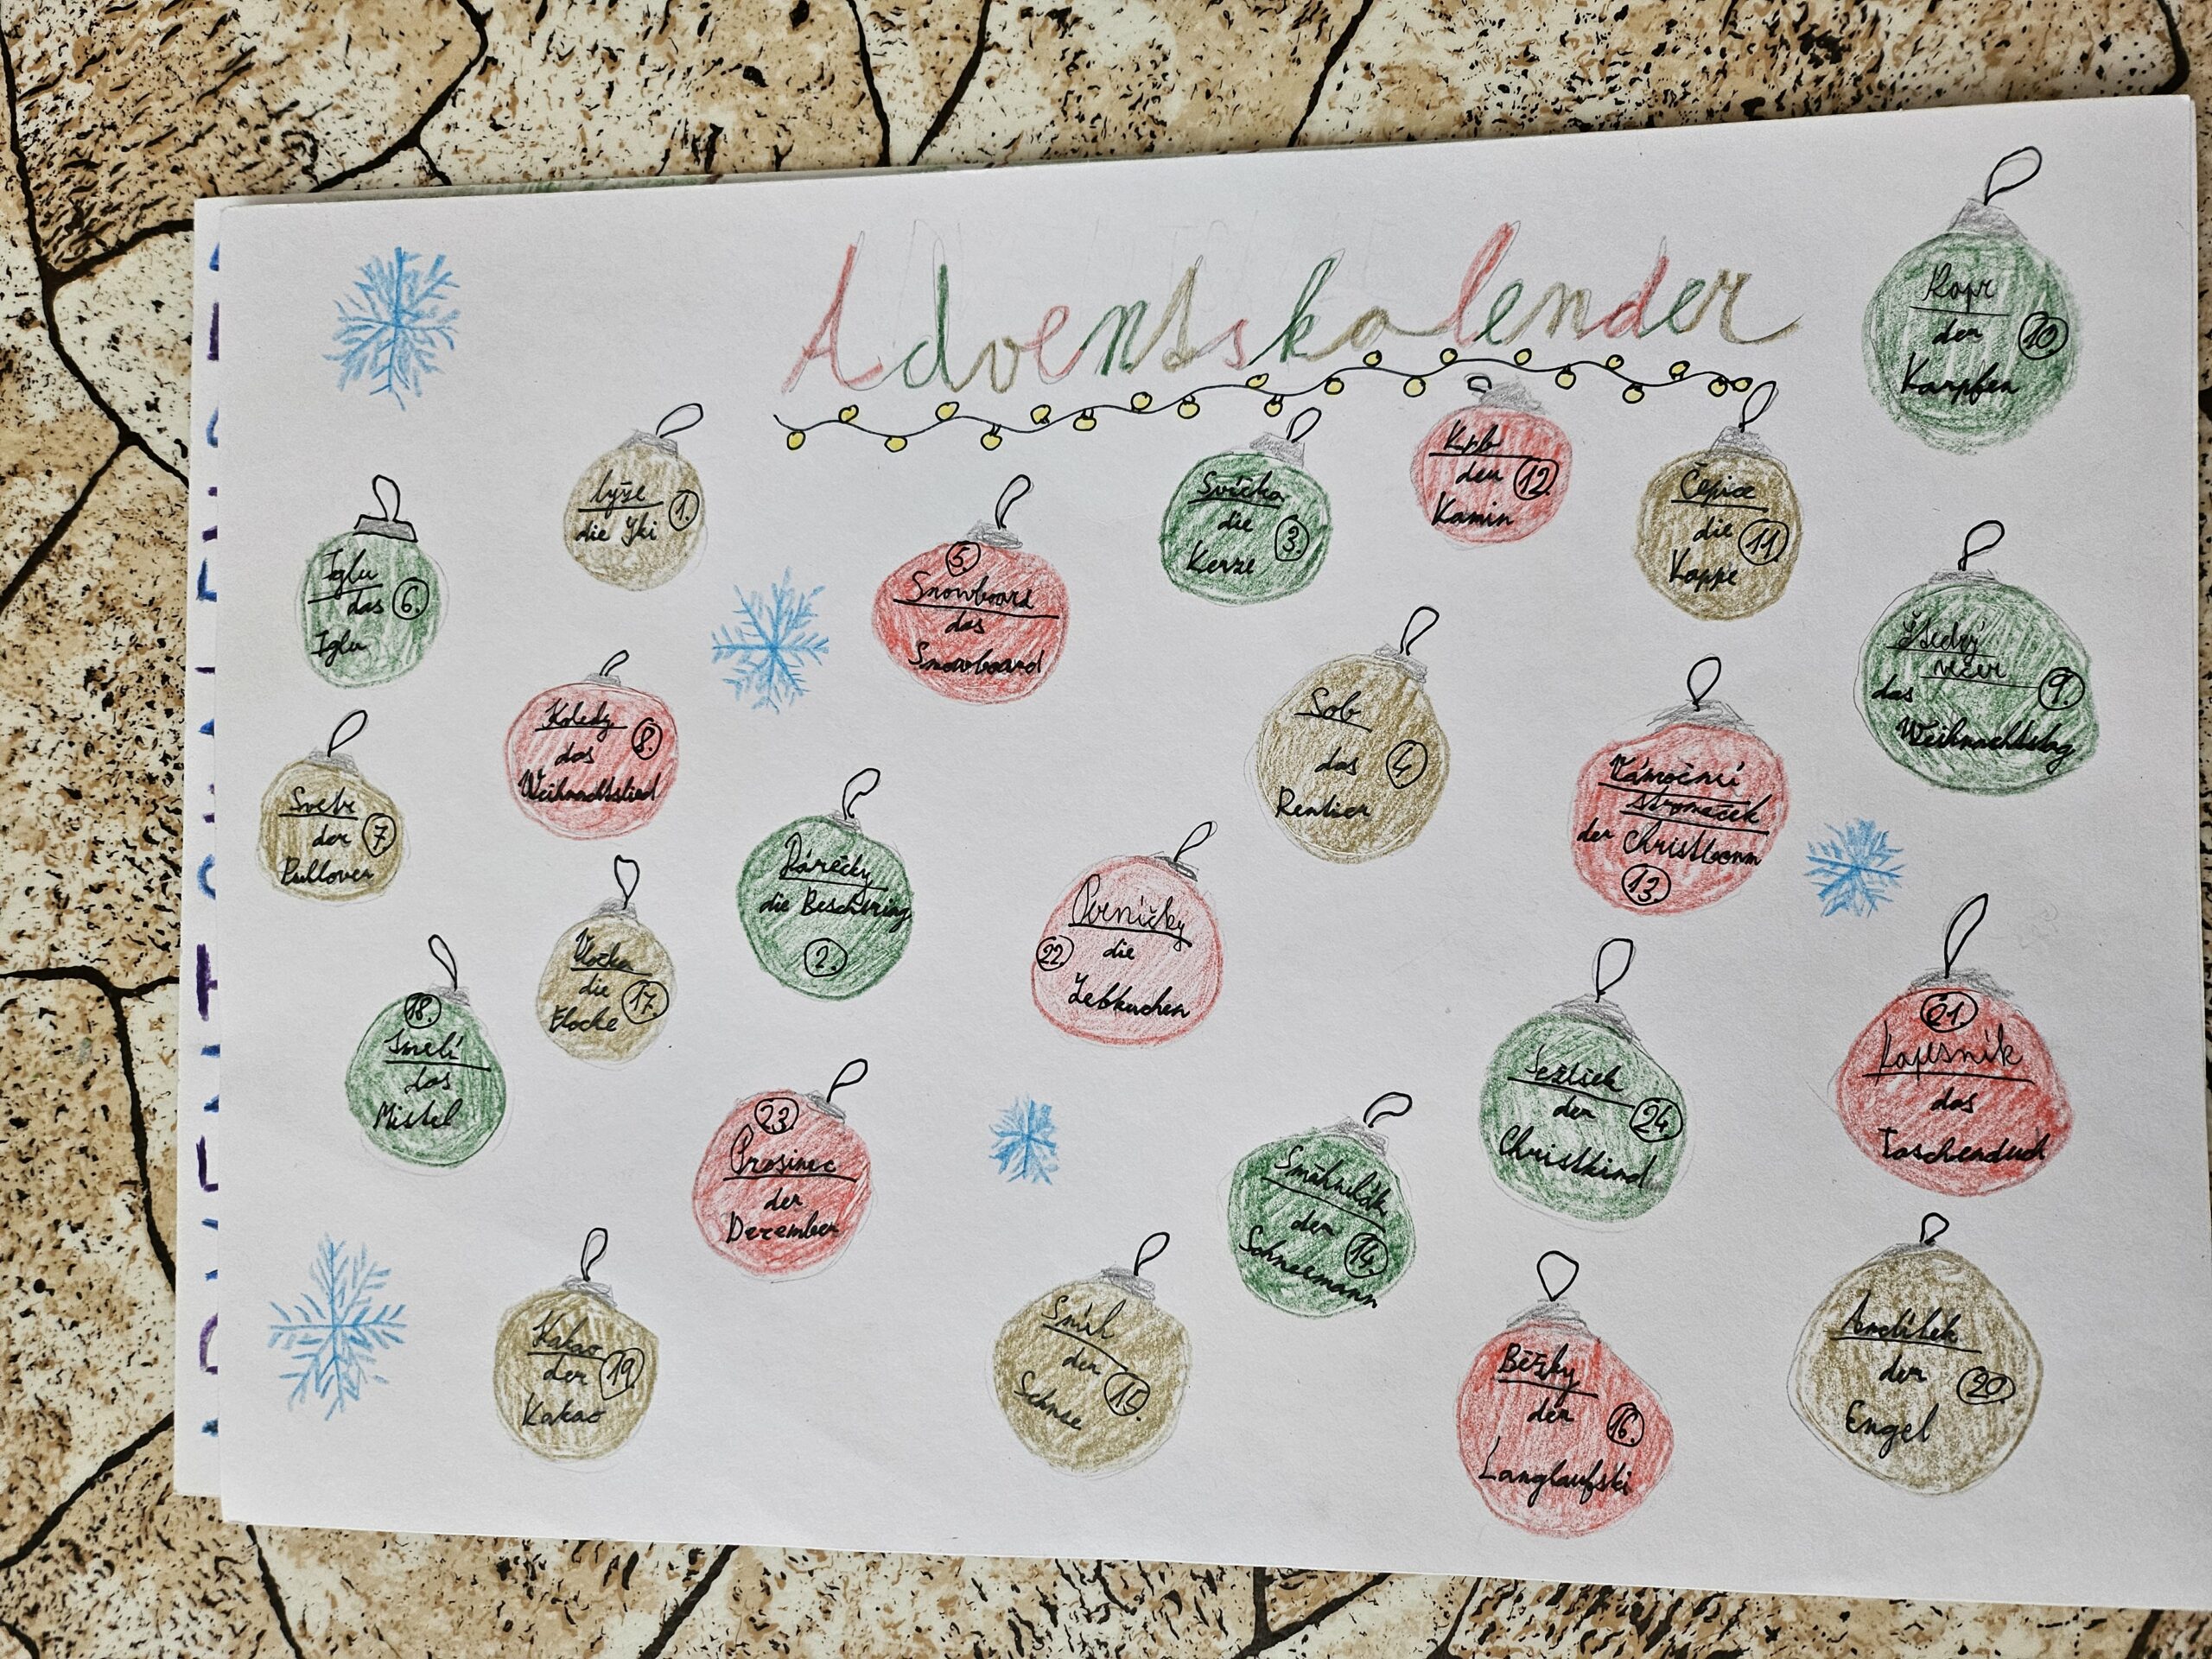 Adventskalender
Kapr
der
10
Karpfen
lyže
die Ski
1.
Svíčka
die
3.
Kerze
Krb
der
12.
Kamin
Čepice
die
11
Kappe
Iglu
das
6.
Iglu
5.
Snowboard
das
Snowboard
Štedrý
večer
das
9.
Weihnachtstag
Koledy
das
8.
Weihnachtslied
Sob
das
4.
Rentier
Vánoční
stromeček
der Christbaum
13.
Svetr
der
7.
Pullover
Dárečky
die Bescherung
2.
Perníčky
die
22.
Lebkuchen
Vločka
die
17.
Flocke
18.
Jmelí
das
Mistel
21.
Kapesník
das
Taschenduch
Ježíšek
der
24.
Christkind
23.
Prosinec
der
Dezember
Sněhulák
der
14.
Schneemann
Kakao
der
19.
Kakao
Sníh
der
15.
Schnee
Běžky
der
16.
Langlaufski
Andílek
der
20.
Engel